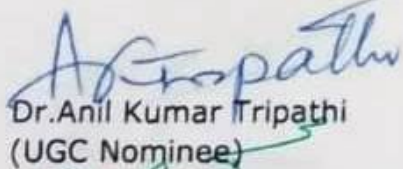 A Tripathi
Dr.Anil Kumar Tripathi
(UGC Nominee)